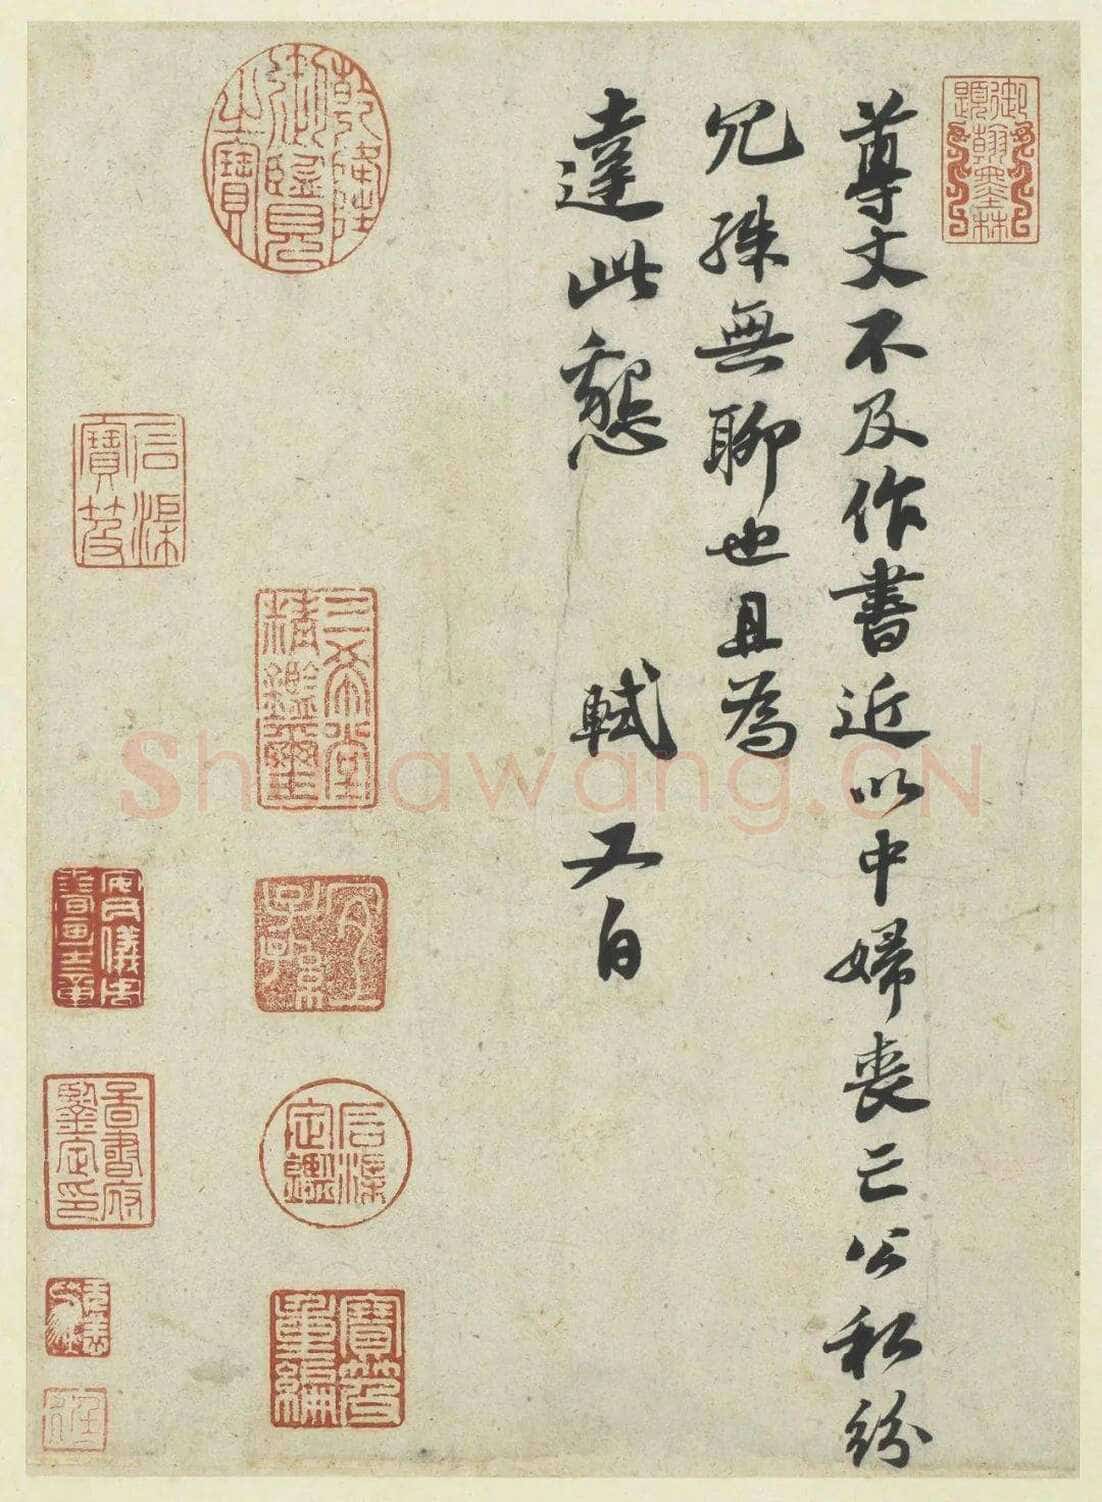 御題翰墨林
尊丈不及作書近以中婦喪亡公私紛
冗殊無聊也且為
達此懇 軾又白
乾隆御覽之寶
三希堂精鑑璽
宜子孫
石渠定鑑
寶笈重編
石渠寶笈
安儀周書畫之章
Shufawang.CN